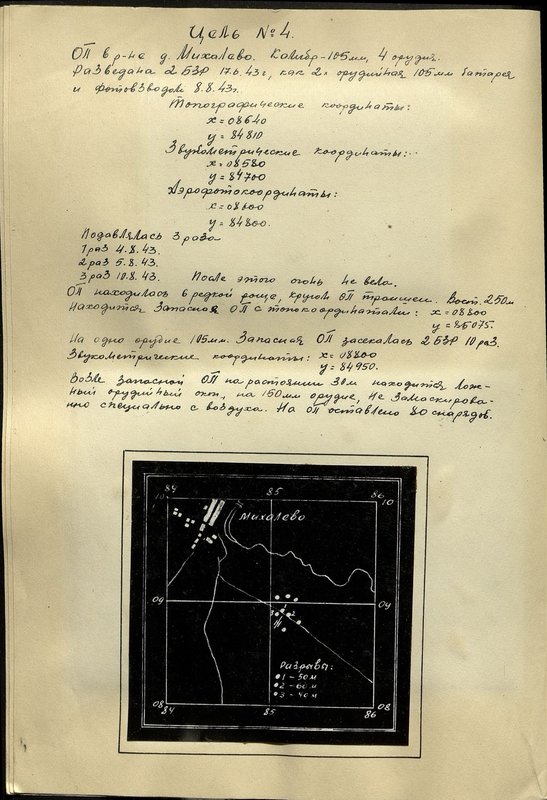 Цель №4.
ОП в р-не д. Михалево. Калибр-105мм, 4 орудия.
Разведана 2 БЗР 17.6.43г, как 2х орудийная 105мм батарея
и фотовзводом 8.8.43г.
Топографические координаты:
х=08640
у=84810
Звукометрические координаты:
х=08580
у=84700
Аэрофотокоординаты:
х=08600
у=84800.
Подавлялась 3 раза
1 раз 4.8.43.
2 раз 5.8.43.
3 раз 10.8.43. После этого огонь не вела.
ОП находилась в редкой роще, кругом ОП траншеи. Вост. 250м
находится Запасная ОП с топокоординатами: х=08800
у=85075.
На одно орудие 105мм. Запасная ОП засекалась 2 БЗР 10 раз.
Звукометрические координаты: х=08800
у=84950.
Возле запасной ОП на расстоянии 30м находится лож-
ный орудийный окоп, на 150мм орудие, не замаскирова-
но специально с воздуха. На ОП оставлено 80 снарядов.
84 85 86
10 10
Михалево
09 09
1
3 2
Разрывы:
1 - 50м
2 - 60м
3 - 40м
08 08
84 85 86